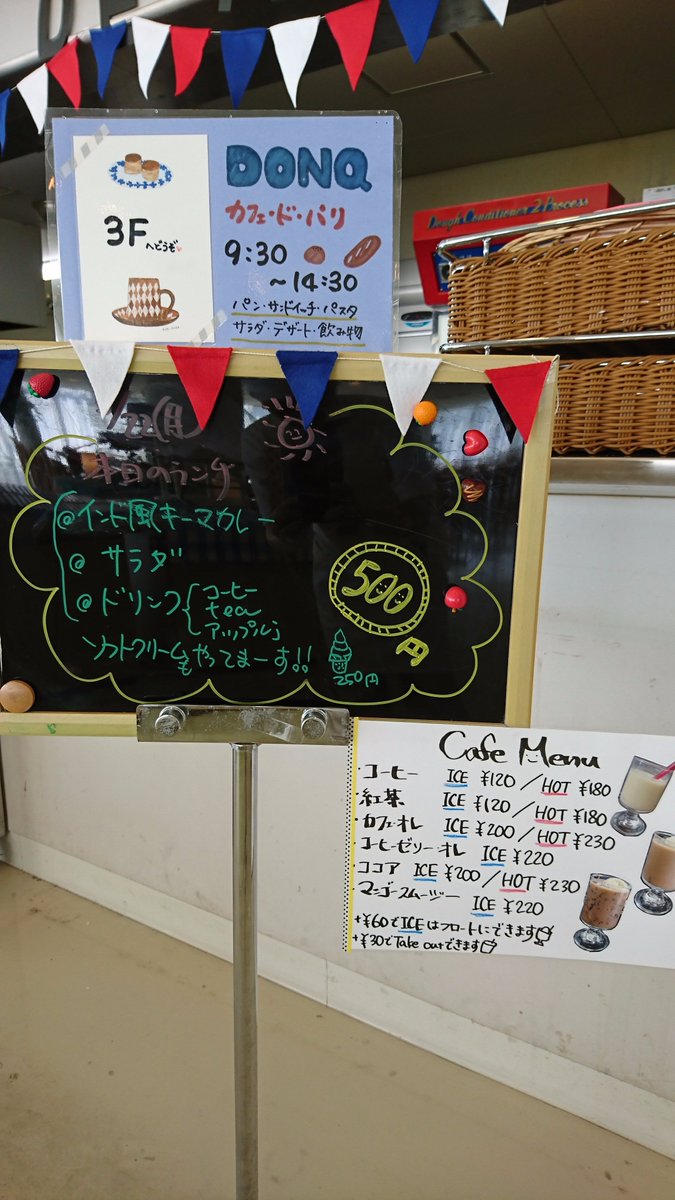 3F
へどうぞ
DONQ
カフェ・ド・パリ
9:30
～14:30
パン・サンドイッチ・パスタ
サラダ・デザート・飲み物
Dough Conditioner 2 Process
/22(月)
本日のランチ
@インド風キーマカレー
@サラダ
@ドリンク
コーヒー
tea
アップルj
500円
ソフトクリームもやってまーす!!
250円
Cafe Menu
・コーヒー ICE ¥120 / HOT ¥180
・紅茶 ICE ¥120 / HOT ¥180
・カフェオレ ICE ¥200 / HOT ¥230
・コーヒーゼリーオレ ICE ¥220
・ココア ICE ¥200 / HOT ¥230
・マンゴースムージー ICE ¥220
+¥60でICEはフロートにできます
+¥30でTake outできます